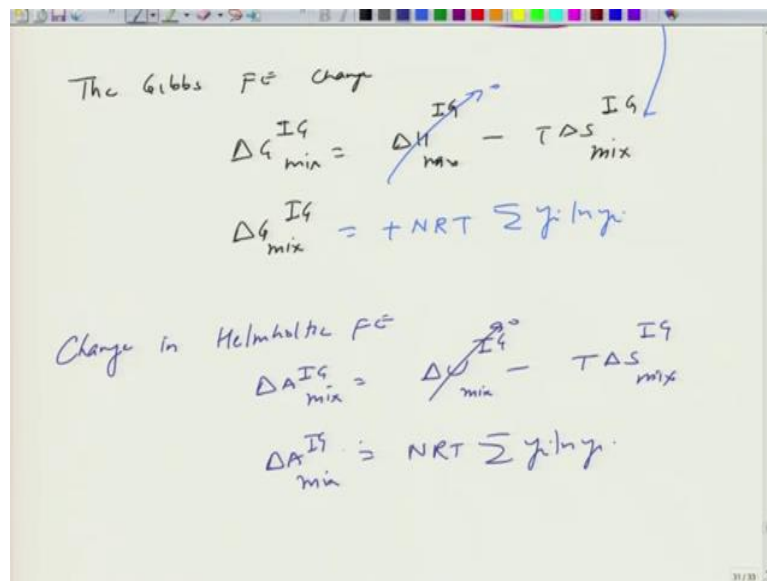 The Gibbs FE change
ΔG^{IG}_{mix} = ΔH^{IG}_{mix} - TΔS^{IG}_{mix}
ΔG^{IG}_{mix} = +NRT Σ yi ln yi
Change in Helmholtz FE
ΔA^{IG}_{mix} = ΔU^{IG}_{mix} - TΔS^{IG}_{mix}
ΔA^{IG}_{mix} = NRT Σ yi ln yi
31/33